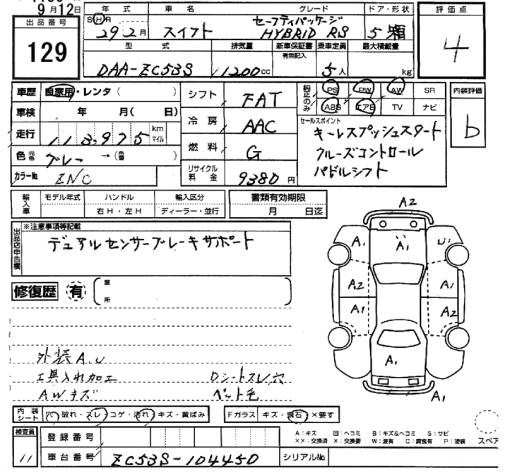 9月12日
年式 車名 グレード ドア・形状 評価点
出品番号 129
SHR 29年2月 スイフト セーフティパッケージ HYBRID RS 5 箱 4
型式 排気量 新車保証書 乗車定員 最大積載量
有無記入
DAA-ZC53S 1200cc 5人 kg
車歴 自家用・レンタ( )
シフト FAT
装備品のみ PS PW AW SR
ABS エアB TV ナビ
内装評価 b
車検 年 月( 日)
冷房 AAC
セールスポイント
キーレスプッシュスタート
クルーズコントロール
パドルシフト
走行 118,975 km マイル
燃料 G
色 元色 グレー →(替 )
カラーNo. ZNC
リサイクル料金 9380円
輸入車 モデル年式 ハンドル 輸入区分 書類有効期限
右H・左H ディーラー・並行 月 日迄
※注意事項等記載
デュアルセンサーブレーキサポート
修復歴 有
箇所
A2
A1 A1 U1
A2 A2
A1 A1
A1
A1
外装A.U
工具入れ加工 Dシートスレ穴
AWキズ ペット毛
内装シート 穴 破れ・スレ コゲ・汚れ キズ・黄ばみ Fガラス キズ・飛石 ×要す
検査員 11
登録番号
A:キズ U:ヘコミ B:キズ&ヘコミ S:サビ
××:交換済 X:交換要 W:波有 C:腐食有 P:塗装
スペア
車台番号 ZC53S-104450 シリアルNo.